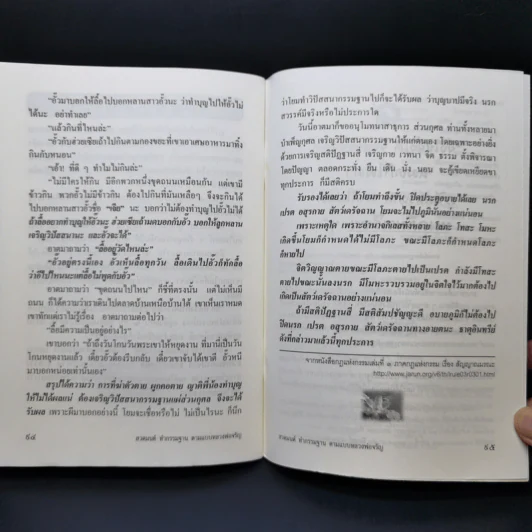 "อั๊วมาบอกให้ลื้อไปบอกหลานสาวอั๊วนะ ว่าทำบุญไปให้อั๊วไม่
ได้นะ อย่าทำเลย"
"แล้วกินที่ไหนล่ะ"
"อั๊วกับฮวยเซียเล้าไปกินตามกองขยะที่เขาเอาเศษอาหารมาทิ้ง
กินกับหนอน"
"เอ้า! ที่ดี ๆ ทำไมไม่กินล่ะ"
"ไม่มีใครให้กิน มีอีกพวกหนึ่งชุดถนนเหมือนกัน แต่เขามี
ข้าวกิน พวกอั๊วไม่มีข้าวกิน ต้องไปกินกองขยะที่มันเหลือๆ จึงจะกินได้
ไปบอกหลานสาวอั๊วชื่อ "เจีย" นะ บอกว่าไม่ต้องทำบุญไปอั๊วไม่ได้
ถ้าลื้ออยากทำบุญให้อั๊วนะ ฮวยเซียเล้าผมบอกกับอั๊ว บอกให้ลูกหลาน
เจริญวิปัสสนานะ และอั๊วจะได้"
อาตมาถามว่า "ลื้ออยู่วัดไหนล่ะ"
"อั๊วอยู่ตรงนี้เอง อั๊วเห็นลื้อทุกวัน ลื้อเดินไปอั๊วก็ทักลื้อ
ว่าไปไหนนะแต่ลื้อไม่พูดกับอั๊ว"
อาตมาถามว่า "ขุดถนนไปไหน" ก็ชี้ที่ตรงนั้น แต่ไม่เห็นมี
ถนน ก็ได้ความว่าเราเดินไปคลาดบ้านเหนือบ้านใต้ เขาเห็นเราหมด
เขาทักแต่เราไม่รู้เรื่อง อาตมาถามต่อไปว่า
"ลื้อมีความเป็นอยู่อย่างไร"
เขาบอกว่า "ถ้าถึงวันโกนวันพระเขาให้หยุดงาน ที่มานี่เป็นวัน
โกนหยุดงานแล้ว เดี๋ยวอั๊วต้องรีบกลับ เดี๋ยวเขาจับได้เขาตี อั๊วหนี
มาบอกหน่อยเท่านั้นเอง"
สรุปได้ความว่า การที่ฆ่าตัวตาย ผูกคอตาย ญาติพี่น้องทำบุญ
ให้ไม่ได้ผลแน่ ต้องเจริญวิปัสสนากรรมฐานแผ่ส่วนกุศล จึงจะได้
รับผล เพราะผีมาบอกอย่างนี้ โยมจะเชื่อหรือไม่ ไม่เป็นไรนะ ก็นึก
๙๔ สวดมนต์ ทำกรรมฐาน ตามแบบหลวงพ่อจรัญ
ว่าโยมทำวิปัสสนากรรมฐานไปก็จะได้รับผล ว่าบุญบาปมีจริง นรก
สวรรค์มีจริงหรือไม่ประการใด
วันนี้อาตมาก็ขออนุโมทนาสาธุการ ส่วนกุศล ท่านทั้งหลายมา
บำเพ็ญกุศล เจริญวิปัสสนากรรมฐานให้แก่ตนเอง โดยเฉพาะอย่างยิ่ง
ด้วยการเจริญสติปัฏฐานสี่ เจริญกาย เวทนา จิต ธรรม ตั้งพิจารณา
โดยปัญญา ตลอดกระทั่ง ยืน เดิน นั่ง นอน จะคู้เขียดเหยียดขา
ทุกประการ ก็มีสติครบ
รับรองได้เลยว่า ถ้าโยมทำถึงขั้น ปิดประตูอบายได้เลย นรก
เปรต อสุรกาย สัตว์เดรัจฉาน โยมจะไม่ไปภูมินั้นอย่างแน่นอน
เพราะเหตุใด เพราะอำนาจกิเลสทั้งหลาย โลภะ โทสะ โมหะ
เกิดขึ้นโยมก็กำหนดได้ไม่มีโลภะ ขณะมีโลภะก็กำหนดโลภะ
ก็หายไป
จิตวิญญาณตายขณะมีโลภะตายไปเป็นเปรต กำลังมีโทสะ
ตายขณะนั้นลงนรก มีโมหะรวบรวมอยู่ในจิตใจไว้มากต้องไป
เกิดเป็นสัตว์เดรัจฉานอย่างแน่นอน
ถ้ามีสติปัฏฐานสี่ มีสติสัมปชัญญะดี อบายภูมิก็ไม่ต้องไป
ปิดนรก เปรต อสุรกาย สัตว์เดรัจฉานทางอายตนะ ธาตุอินทรีย์
ดังที่กล่าวมาแล้วนี้ทุกประการ
จากหนังสือกฎแห่งกรรมเล่มที่ ๑ ภาคกฎแห่งกรรม เรื่อง สัญญาณมรณะ
http://www.jarun.org/v6/th/rule03r0301.html
สวดมนต์ ทำกรรมฐาน ตามแบบหลวงพ่อจรัญ ๙๕